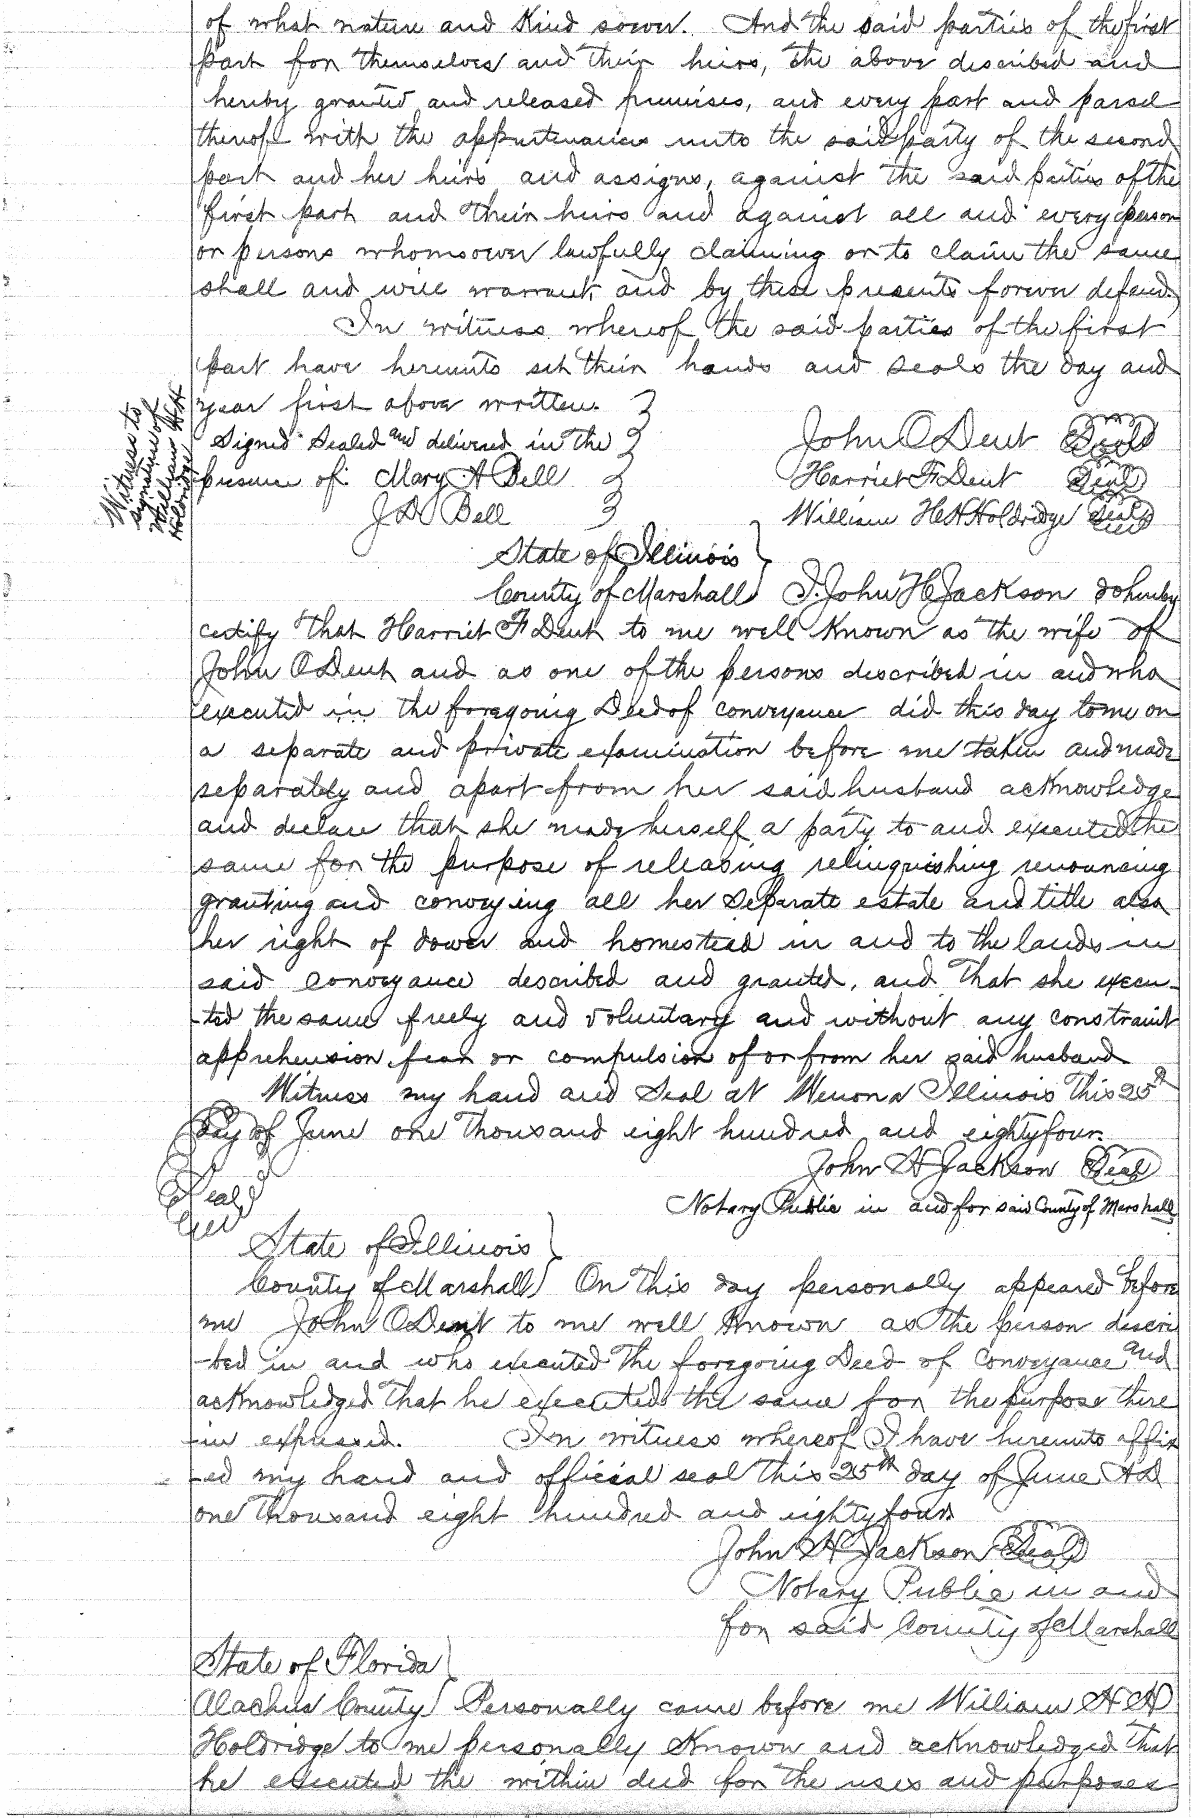 of what nature and Kind soever. And the said parties of the first
part for themselves and their heirs, the above described and
hereby granted and released premises, and every part and parsel
thereof with the appurtenances unto the said party of the second
part and her heirs and assigns, against the said parties of the
first part and their heirs and against all and every person
or persons whomsoever lawfully claiming or to claim the same
shall and will warrant and by these presents forever defend.
In witness whereof the said parties of the first
part have hereunto set their hands and seals the day and
year first above written.
Witness to
signature of
William H H
Holdridge
Signed Sealed and delivered in the
presence of: Mary A Bell
J D Bell
John O Dent Seal
Harriet F Dent Seal
William H H Holdridge Seal
State of Illinois
County of Marshall I. John H Jackson do hereby
certify that Harriet F Dent to me well Known as the wife of
John O Dent and as one of the persons described in and who
executed in the foregoing Deed of conveyance did this day to me on
a separate and private examination before me taken and made
separately and apart from her said husband acknowledge
and declare that she made herself a party to and executed the
same for the purpose of releasing relinquishing renouncing
granting and conveying all her separate estate and title also
her right of dower and homestead in and to the lands in
said conveyance described and granted, and that she execu-
-ted the same freely and voluntary and without any constraint
apprehension fear or compulsion of or from her said husband
Witness my hand and Seal at Wenona Illinois this 25th
day of June one thousand eight hundred and eighty four.
John H Jackson Seal
Seal
Notary Public in and for said County of Marshall
State of Illinois
County of Marshall On this day personally appeared before
me John O Dent to me well Known as the person discri
-bed in and who executed the foregoing Deed of Conveyance and
acknowledged that he executed the same for the purpose there
-in expressed. In witness whereof I have hereunto affix
-ed my hand and official seal this 25th day of June A D
one thousand eight hundred and eighty four
John H Jackson Seal
Notary Public in and
for said County of Marshall
State of Florida
Alachua County Personally came before me William H H
Holdridge to me personally Known and acknowledged that
he executed the within deed for the uses and purposes